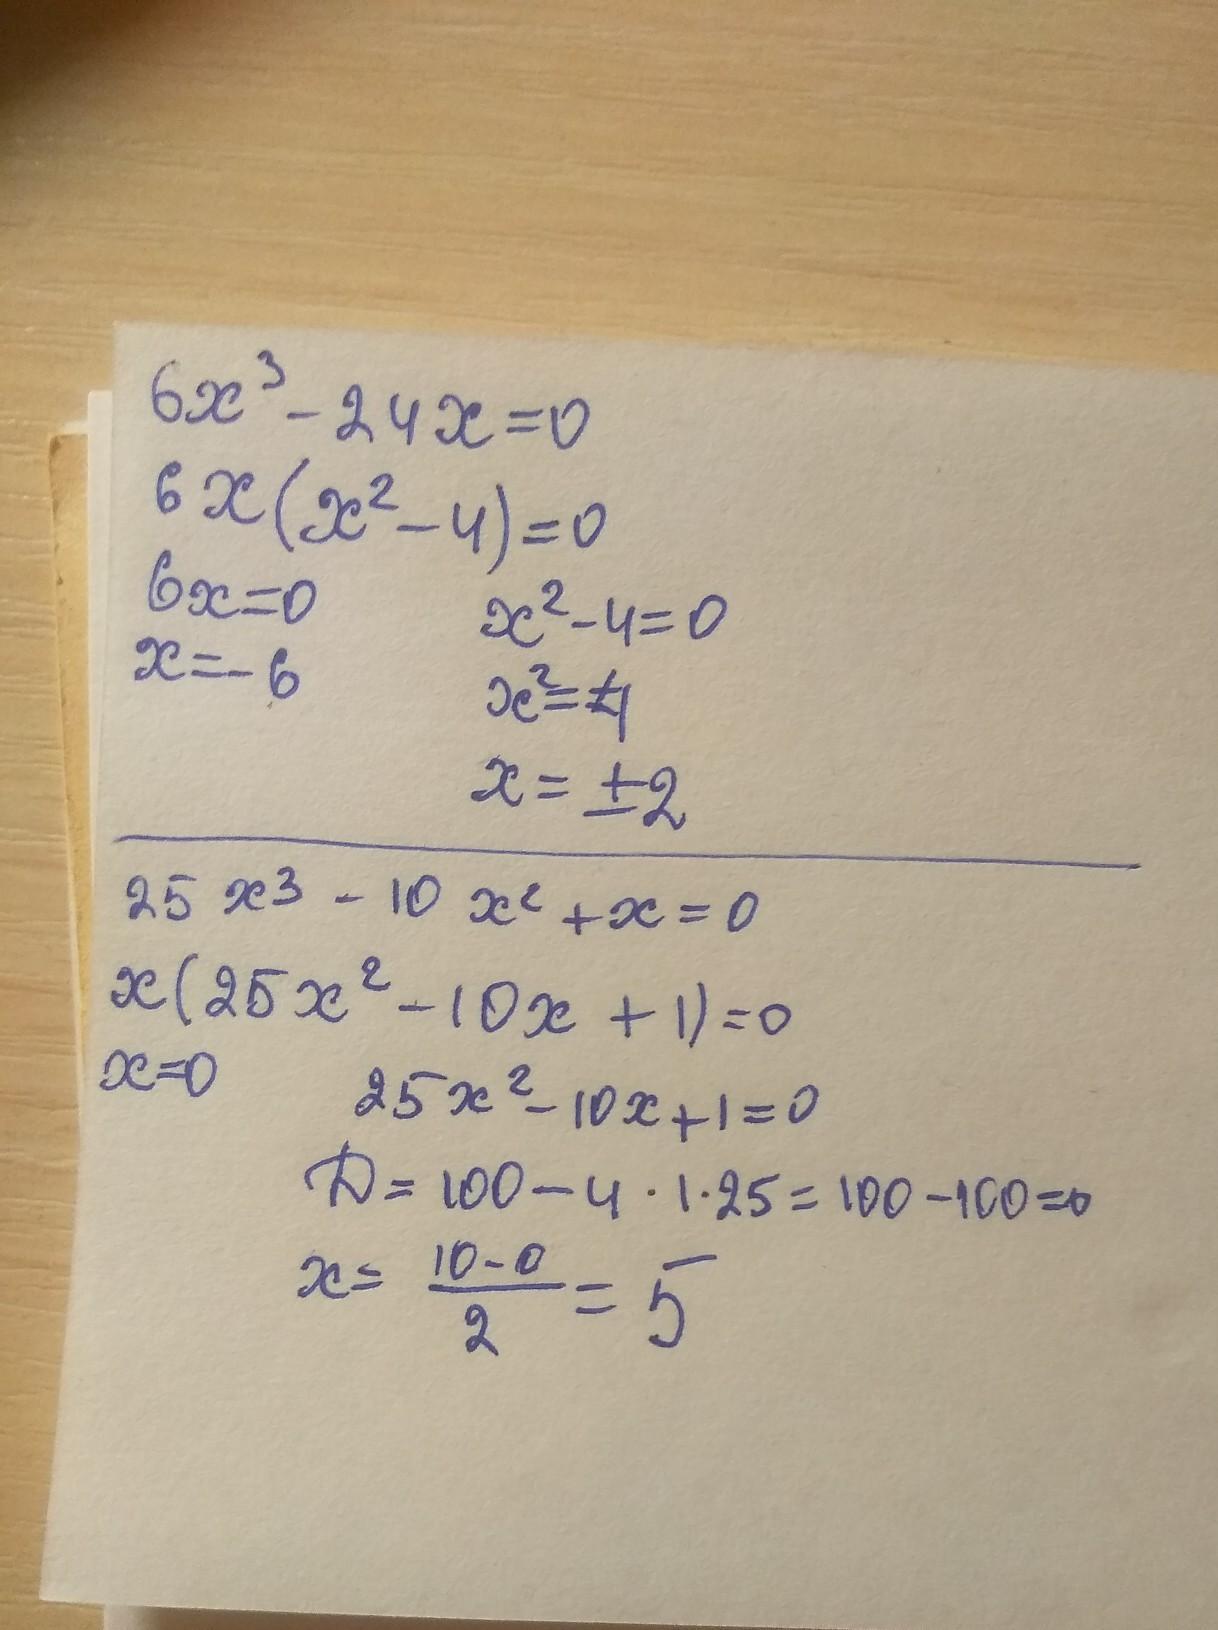 6x³ - 24x = 0
6x(x² - 4) = 0
6x = 0 x² - 4 = 0
x = - 6 x² = 4
x = ± 2
25 x³ - 10 x² + x = 0
x(25x² - 10x + 1) = 0
x = 0 25x² - 10x + 1 = 0
D = 100 - 4 · 1 · 25 = 100 - 100 = 0
x = (10 - 0)/2 = 5